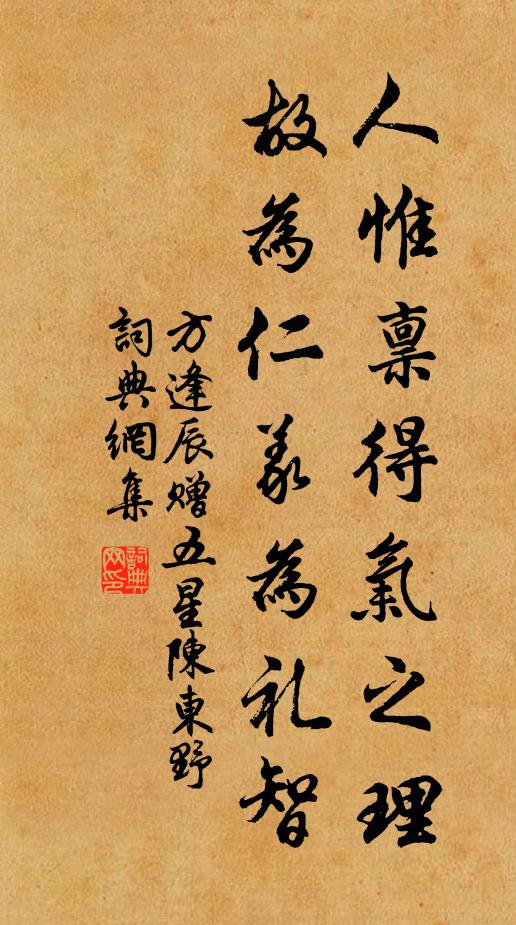 人惟禀得氣之理
故為仁義為礼智
方逢辰赠五星陳東野
詞典網集
詞典网印